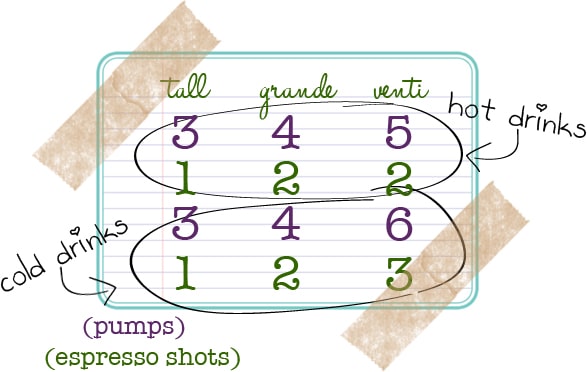 tall grande venti
hot drinks
3 4 5
1 2 2
3 4 6
cold drinks
1 2 3
(pumps)
(espresso shots)